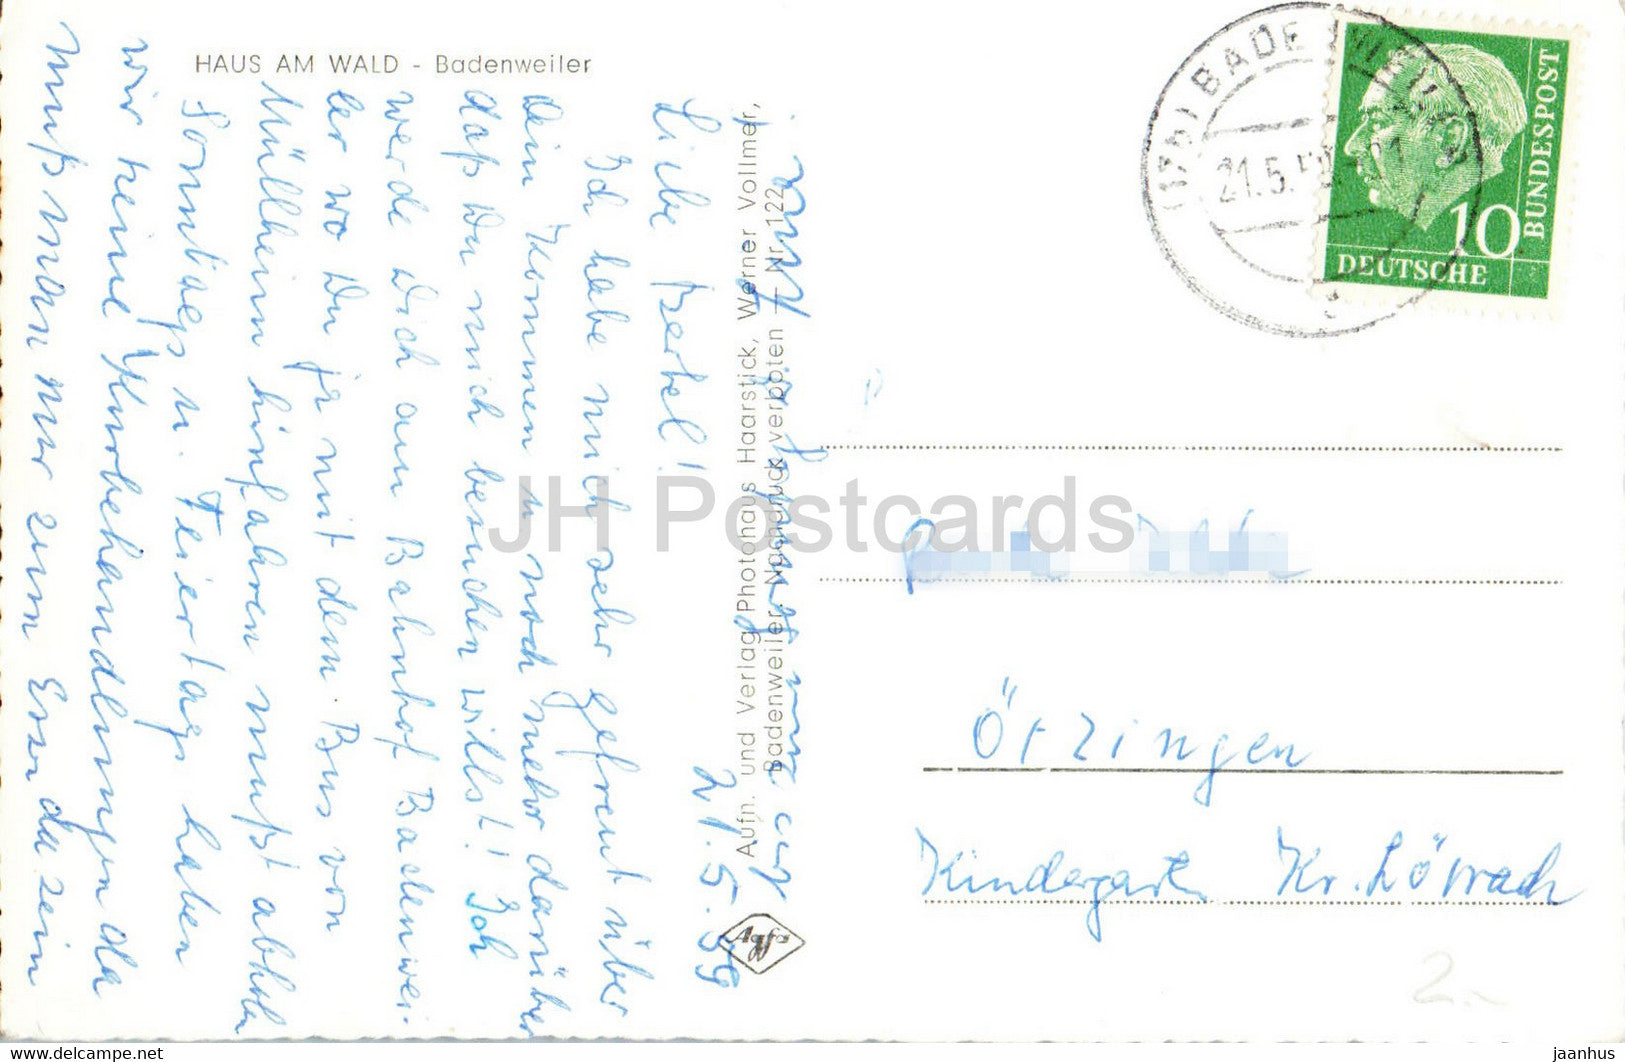 HAUS AM WALD - Badenweiler
21.5.59
Liebe Bertel!
Ich habe mich sehr gefreut über
dein Kommen u noch mehr darüber
daß Du mich besuchen willst! Ich
werde Dich am Bahnhof Badenwei-
ler wo Du ja mit dem Bus von
Müllheim hinfahren mußt abholen
Sonntags u. Feiertags haben
wir keine Kurbehandlungen da
muß man nur zum Essen da sein
Aufn. und Verlag Photohaus Haarstick, Werner Vollmer,
Badenweiler Nachdruck verboten - Nr. 122
Agfa
(17b) BADENWEILER
21.5.
10
DEUTSCHE
BUNDESPOST
Ötzingen
Kindergarten Kr. Lörrach
2.-
JH Postcards
www.delcampe.net
jaanhus